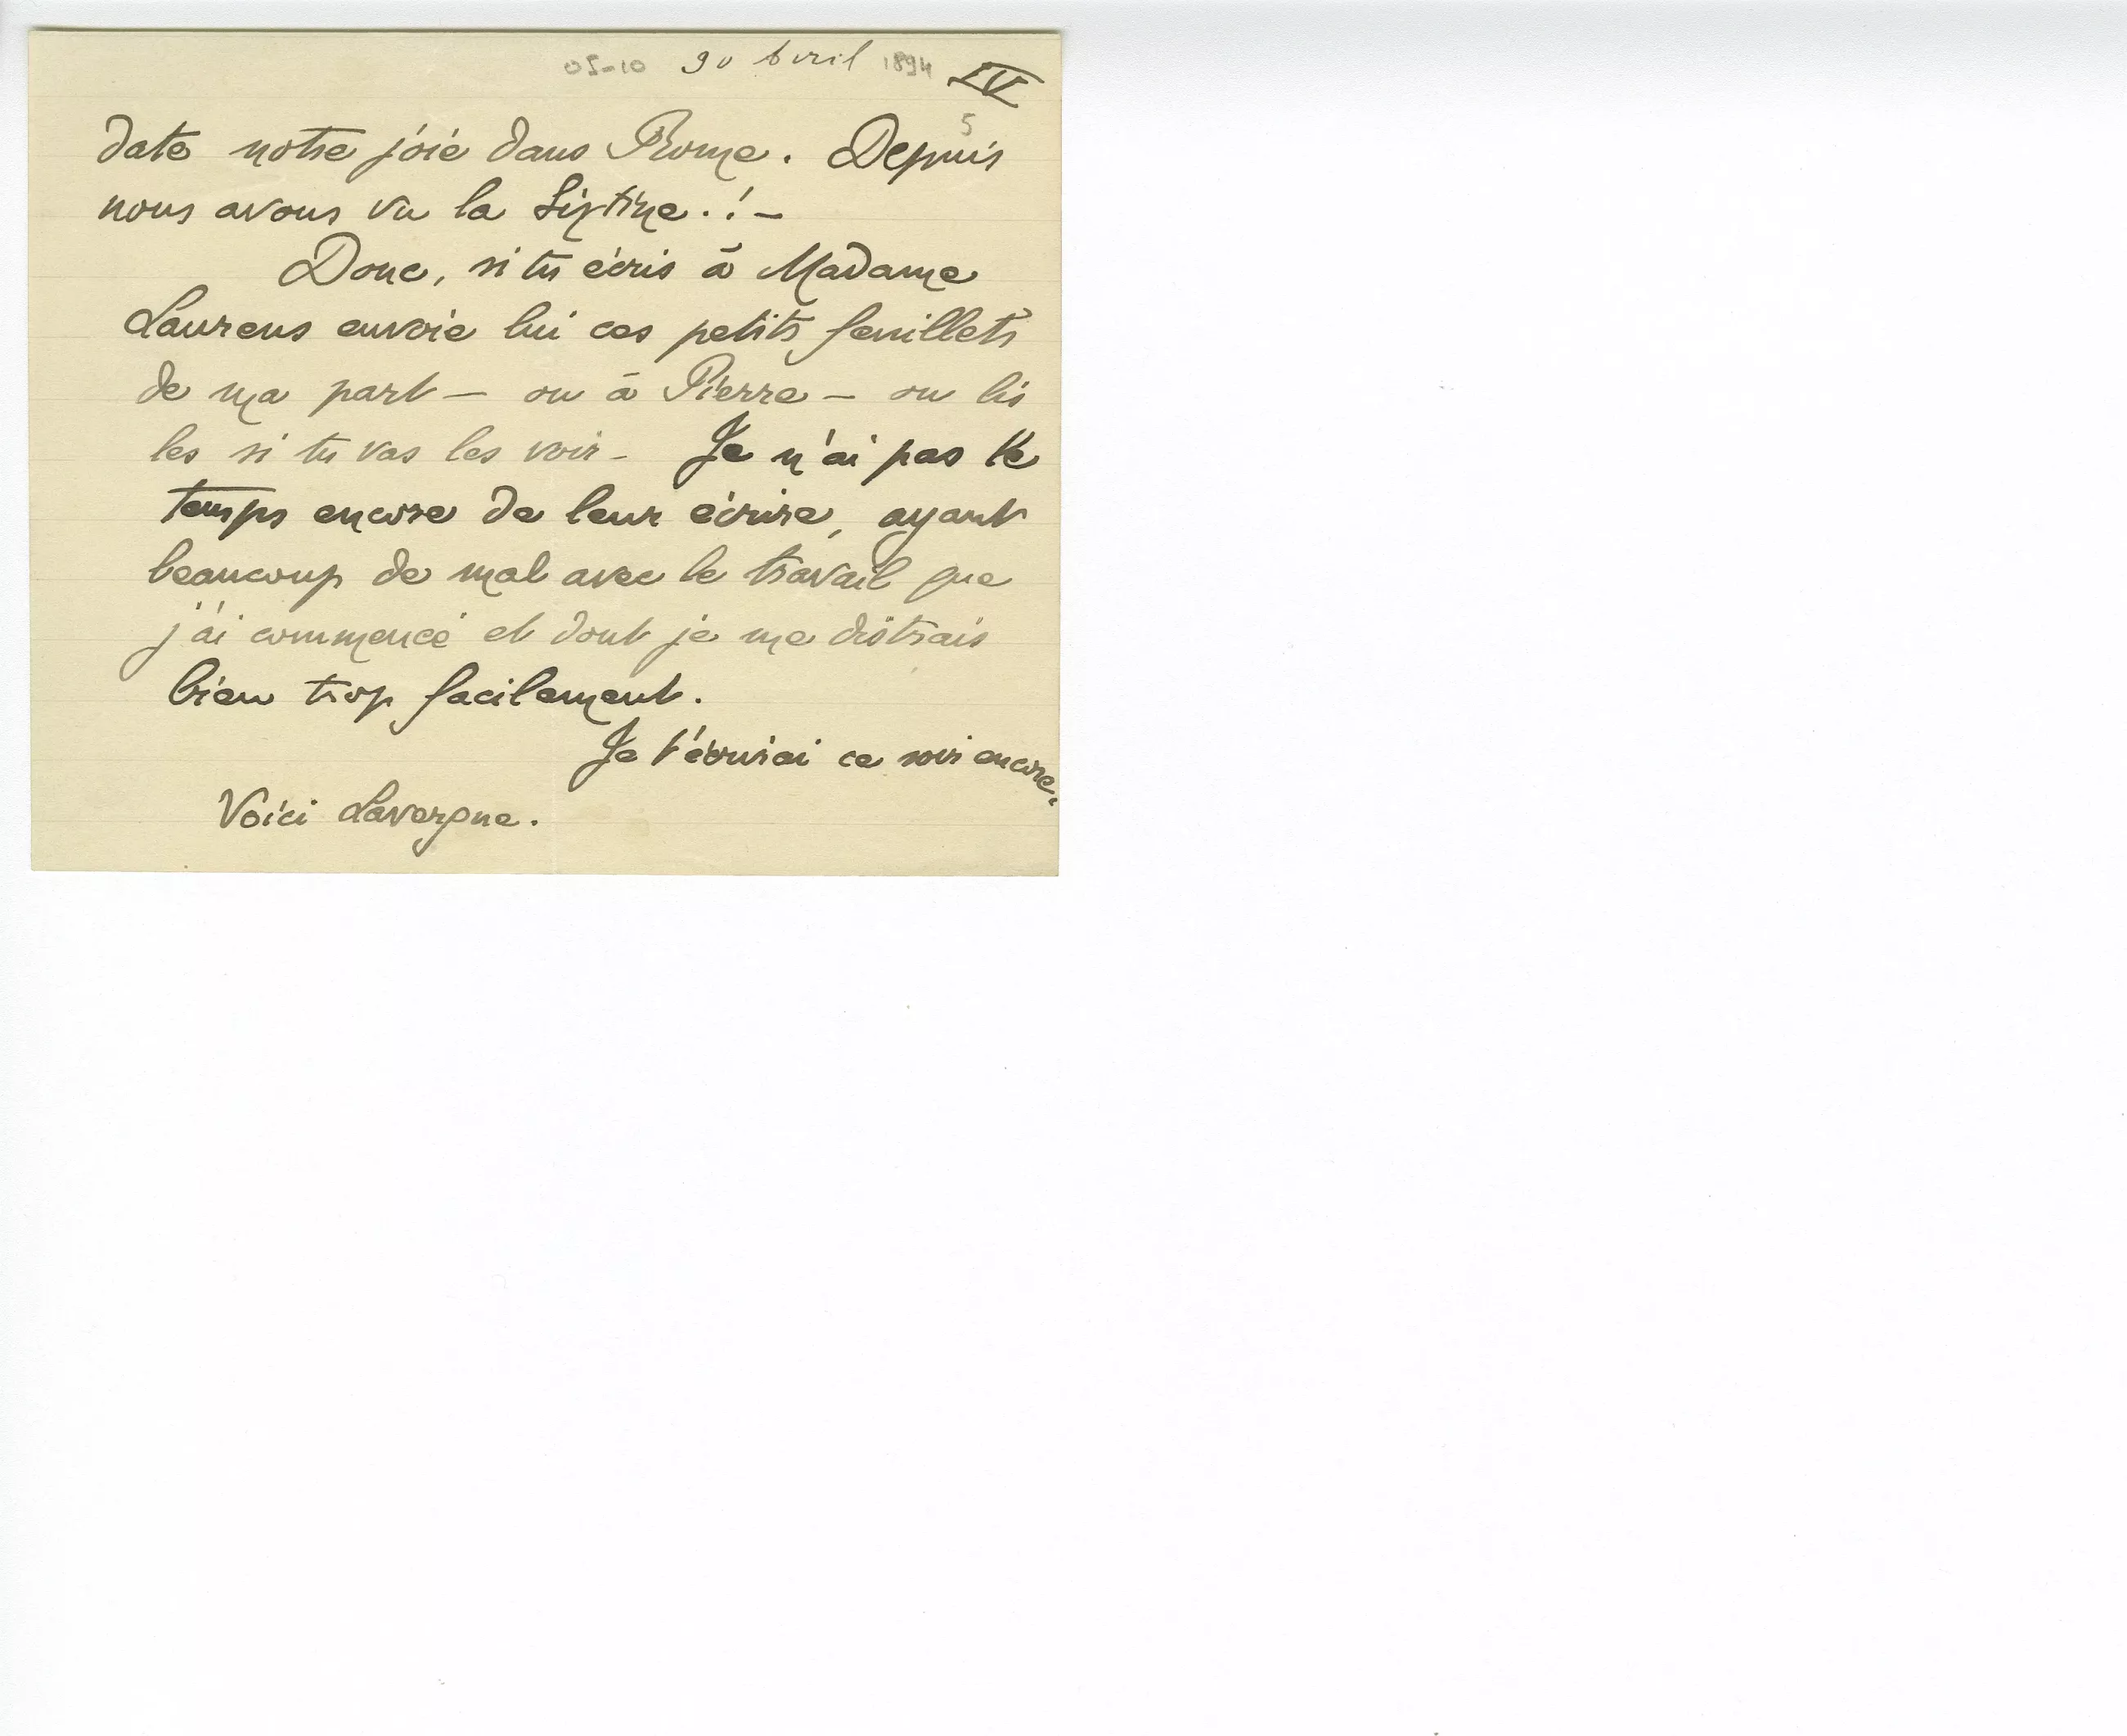 05-10 30 Avril 1894 IV
5
date notre joie dans Rome. Depuis
nous avons vu la Sixtine.! –
Donc, si tu écris à Madame
Laurens envoie lui ces petits feuillets
de ma part – ou à Pierre – ou lis
les si tu vas les voir – Je n'ai pas le
temps encore de leur écrire, ayant
beaucoup de mal avec le travail que
j'ai commencé et dont je me distrais
bien trop facilement.
Je t'écrirai ce soir encore.
Voici Lavergne.